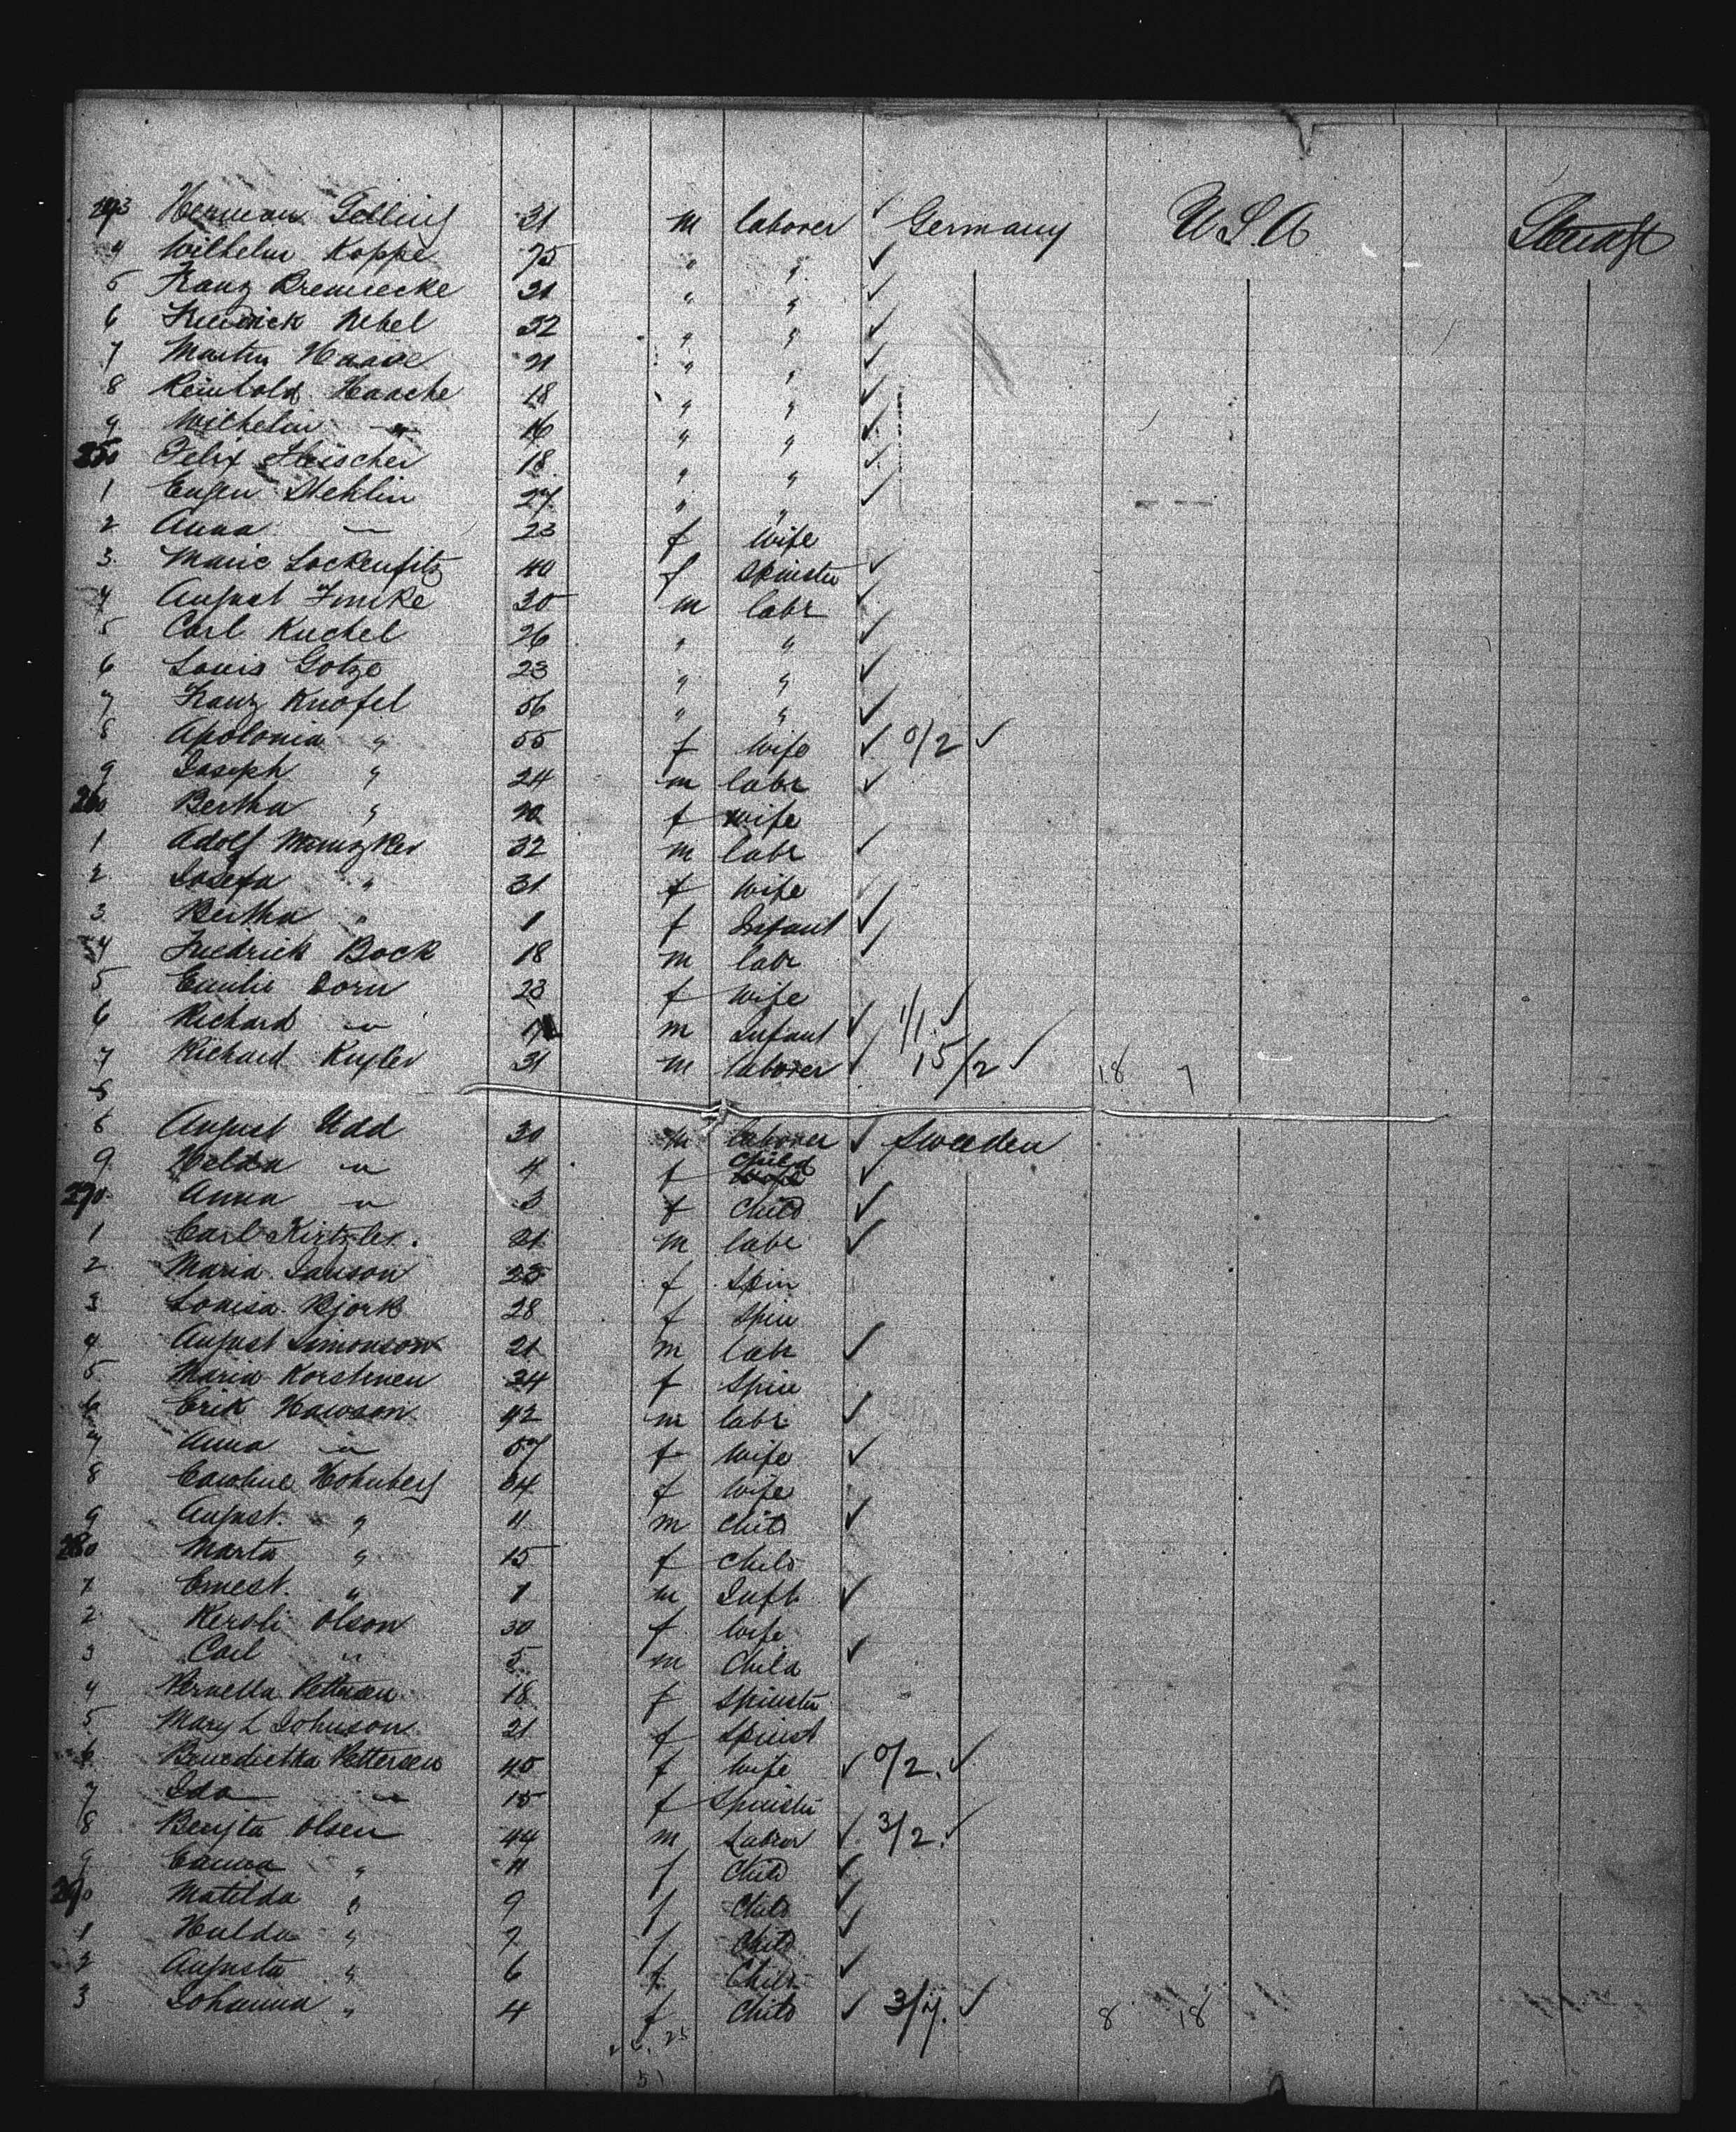 243 Herman Gelling 31 m laborer ✓ Germany U.S.A
4 Wilhelm Koppe 25 " " ✓
5 Franz Bremecke 31 " " ✓
6 Frederick Rebel 32 " " ✓
7 Martin Haase 21 " " ✓
8 Reinhold Haache 18 " " ✓
9 Wilhelm " 16 " " ✓
250 Felix Fleischer 18 " " ✓
1 Eugen Stehlin 27 " " ✓
2 Anna " 23 f wife
3 Marie 40 f Spinster ✓
4 August Funke 30 m labr ✓
5 Carl Kuchel 26 " " ✓
6 Louis Gotze 23 " " ✓
7 Franz Knofel 56 " " ✓
8 Apolonia " 55 f Wife ✓ 0/2 ✓
9 Joseph " 24 m labr ✓
260 Bertha " f wife
1 Adolf 32 m labr ✓
2 Josefa " 31 f Wife
3 Bertha " 1 f Infant ✓
4 Fredrick Bock 18 m labr ✓
5 Emilie Dorn 23 f Wife
6 Richard " m Infant ✓ 1/1 ✓
7 Richard Kugler 31 m laborer ✓ 15/2 ✓ 18 7
8
6 August Udd 30 m laborer ✓ Sweden
9 Helda " 4 f child ✓
270 Anna " 3 f Child ✓
1 Carl 21 m labr ✓
2 Maria Janson 25 f Spin
3 Louisa Bjork 28 f Spin
4 August Simonson 21 m labr ✓
5 Maria 34 f Spin
6 Erik Hawson 42 m labr ✓
7 Anna " 57 f Wife ✓
8 Caroline Hohnberg 34 f Wife
9 August " 11 m Child ✓
280 Marta " 15 f Child
1 Ernest " 1 m Inft ✓
2 Kersti Olson 30 f Wife
3 Carl " 5 m Child ✓
4 Pernella Pettersen 18 f Spinster
5 Mary L Johnson 21 f Spinst
6 Benedictha Pettersen 45 f Wife ✓ 0/2. ✓
7 Ida " 15 f Spinster
8 Bengta Olsen 44 m Labror ✓ 3/2. ✓
9 " 11 f Child ✓
290 Matilda " 9 f Child ✓
1 Hulda " 7 f Child ✓
2 Augusta " 6 f Child ✓
3 Johanna " 4 f Child ✓ 3/4. ✓ 8 18
25
51